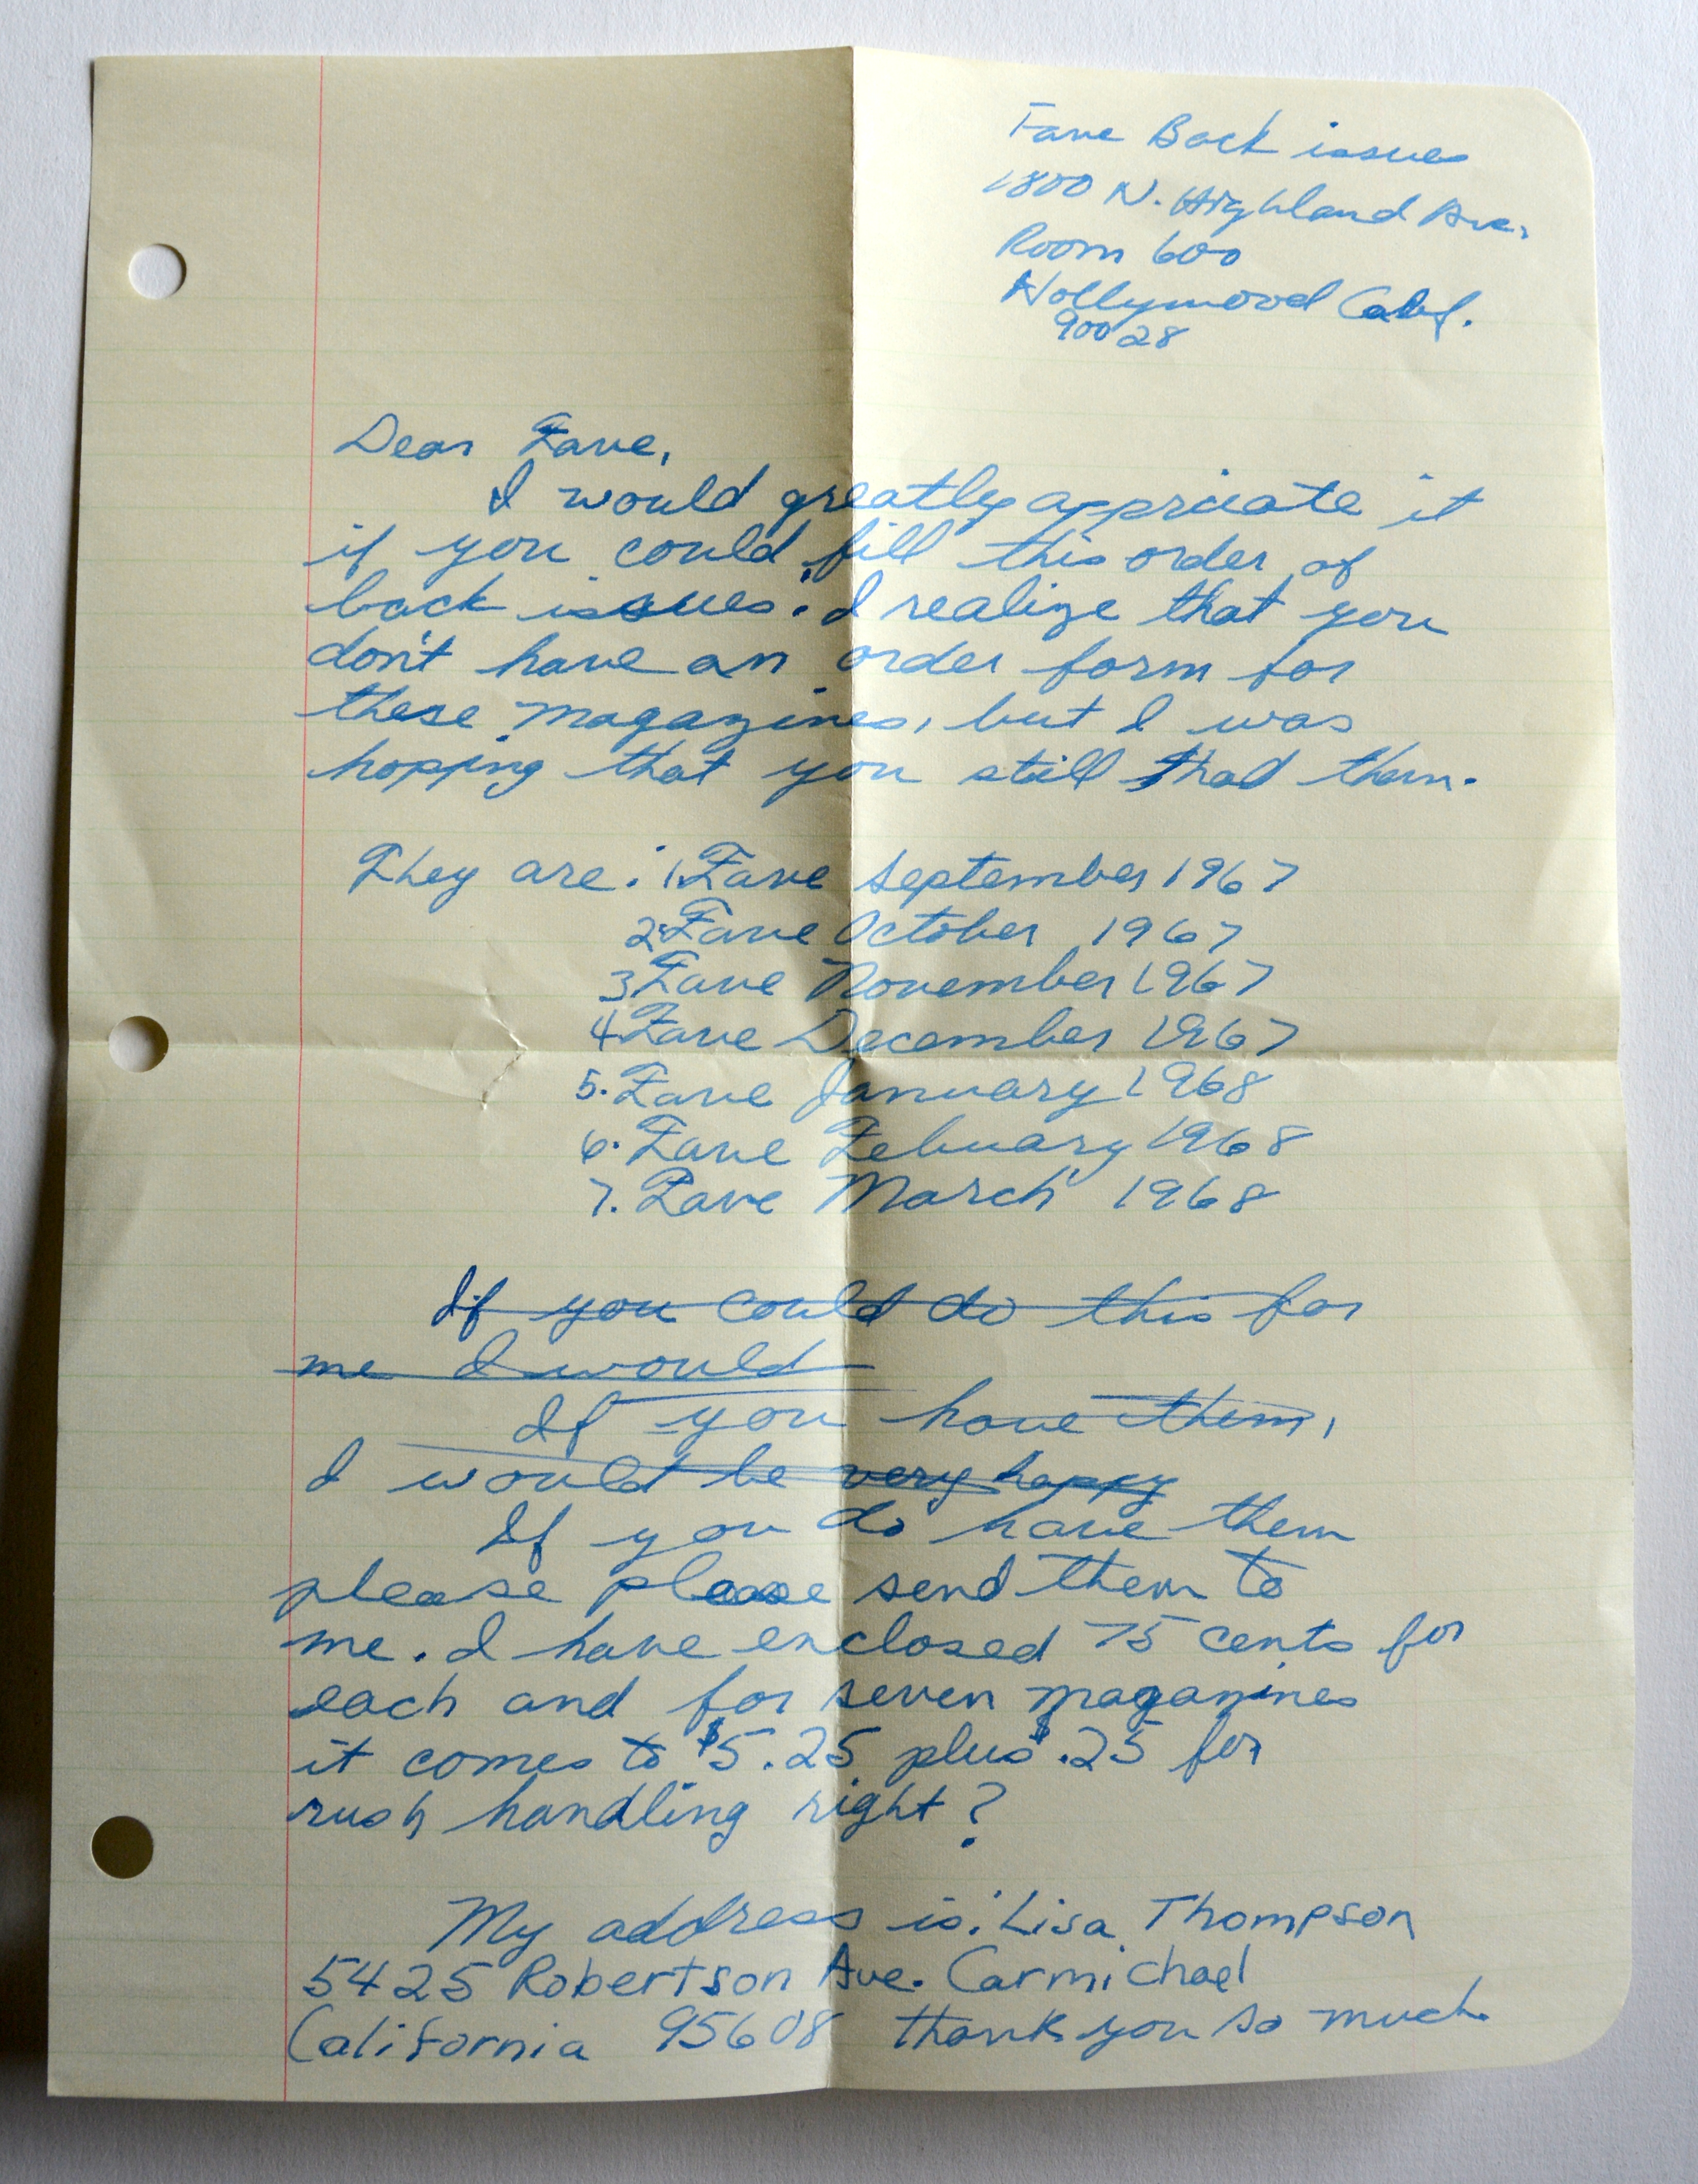 Fave Back issues
1800 N. Highland Ave.
Room 600
Hollywood Calif.
90028
Dear Fave,
I would greatly appriciate it
if you could fill this order of
back issues. I realize that you
don't have an order form for
these magazines, but I was
hopping that you still had them.
They are: 1. Fave September 1967
2. Fave October 1967
3 Fave November 1967
4 Fave December 1967
5. Fave January 1968
6. Fave Febuary 1968
7. Fave March 1968
If you could do this for
me I would
If you have them,
I would be very happy
If you do have them
please please send them to
me. I have enclosed 75 cents for
each and for seven magazines
it comes to $5.25 plus $.25 for
rush handling right?
My address is: Lisa Thompson
5425 Robertson Ave. Carmichael
California 95608 thank you so much